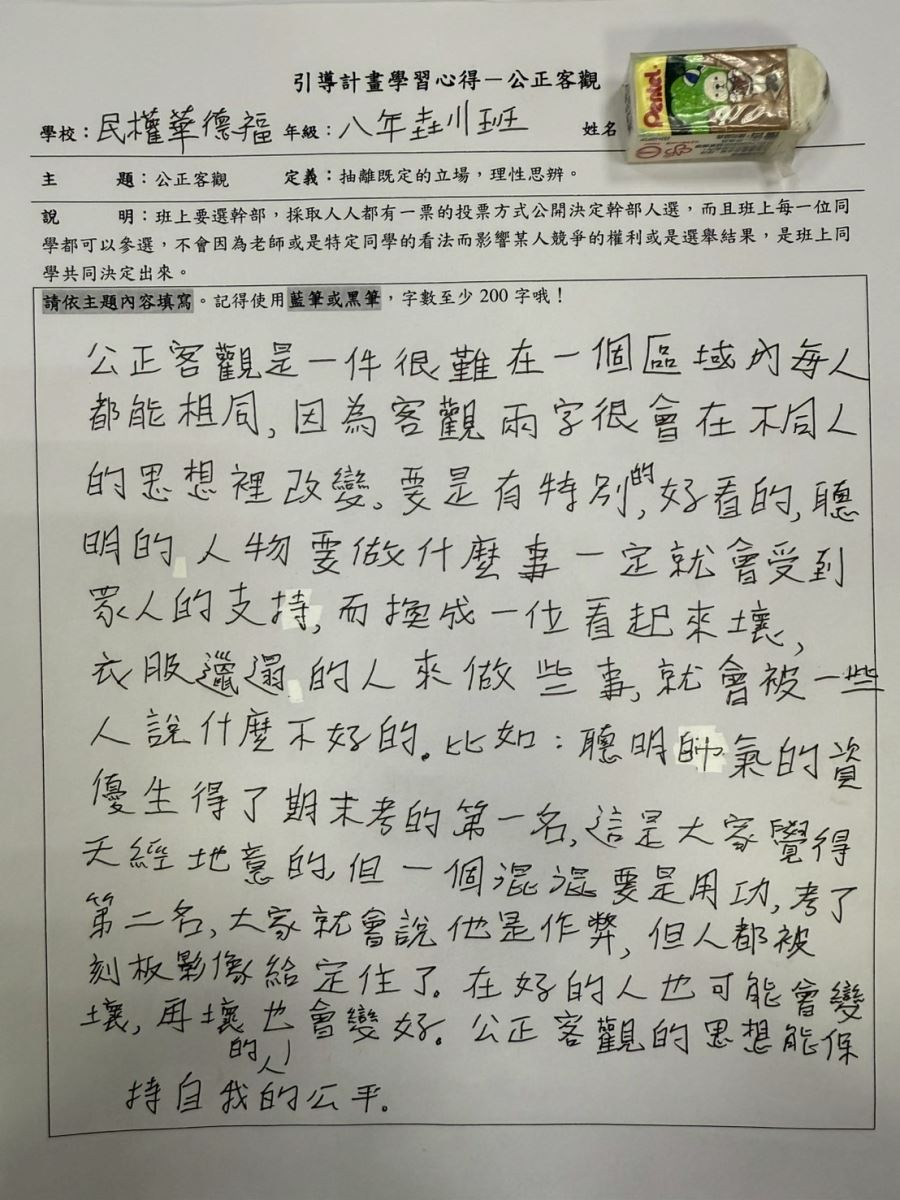 引導計畫學習心得－公正客觀
學校：民權華德福 年級：八年垚川班 姓名
主 題：公正客觀 定義：抽離既定的立場，理性思辨。
說 明：班上要選幹部，採取人人都有一票的投票方式公開決定幹部人選，而且班上每一位同
學都可以參選，不會因為老師或是特定同學的看法而影響某人競爭的權利或是選舉結果，是班上同
學共同決定出來。
請依主題內容填寫。記得使用藍筆或黑筆，字數至少 200 字哦！
公正客觀是一件很難在一個區域內每人
都能相同，因為客觀兩字很會在不同人
的思想裡改變。要是有特別的，好看的，聰
明的人物要做什麼事一定就會受到
眾人的支持，而換成一位看起來壞，
衣服邋遢的人來做些事，就會被一些
人說什麼不好的。比如：聰明帥氣的資
優生得了期末考的第一名，這是大家覺得
天經地意的，但一個混混要是用功，考了
第二名，大家就會說他是作弊，但人都被
刻板影像給定住了。在好的人也可能會變
壞，再壞的人也會變好。公正客觀的思想能保
持自我的公平。
Pentel